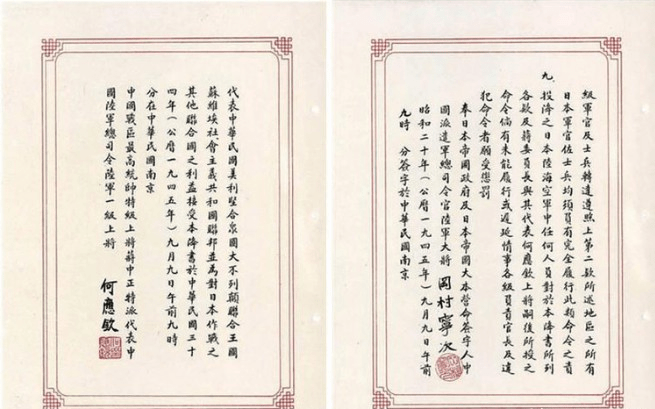 級軍官及士兵轉遵照上第二款所述地區之所有
日本軍官佐士兵均須負有完全履行此類命令之責
九、投降之日本陸海空軍中任何人員對於本降書所列
各款及蔣委員長與其代表何應欽上將嗣後所授之
命令倘有未能履行或遲延情事各級負責官長及違
犯命令者願受懲罰
奉日本帝國政府及日本帝國大本營命簽字人中
國派遣軍總司令官陸軍大將 岡村寧次
昭和二十年(公曆一九四五年)九月九日午前
九時 分簽字於中華民國南京
代表中華民國美利堅合衆國大不列顛聯合王國
蘇維埃社會主義共和國聯邦並為對日本作戰之
其他聯合國之利益接受本降書於中華民國三十
四年(公曆一九四五年)九月九日午前九時
分在中華民國南京
中國戰區最高統帥特級上將蔣中正特派代表中
國陸軍總司令陸軍一級上將
何應欽